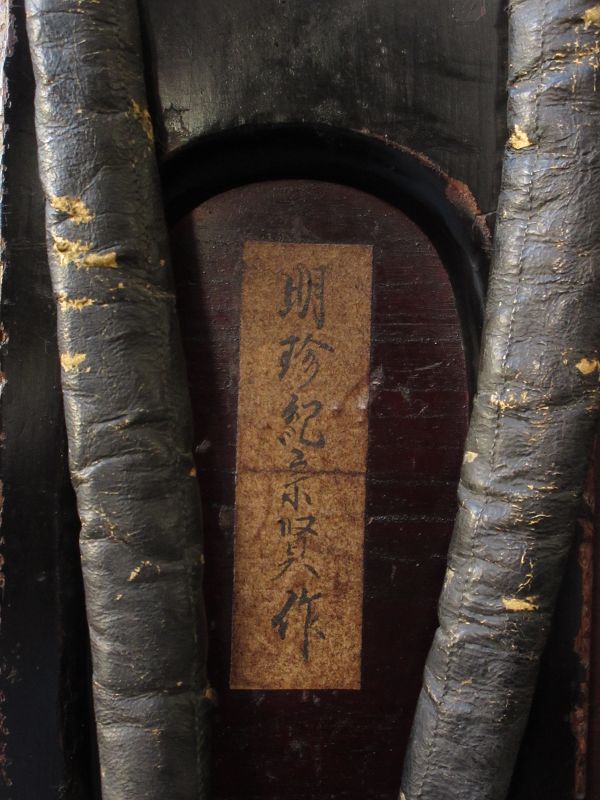 明珍紀宗賢作